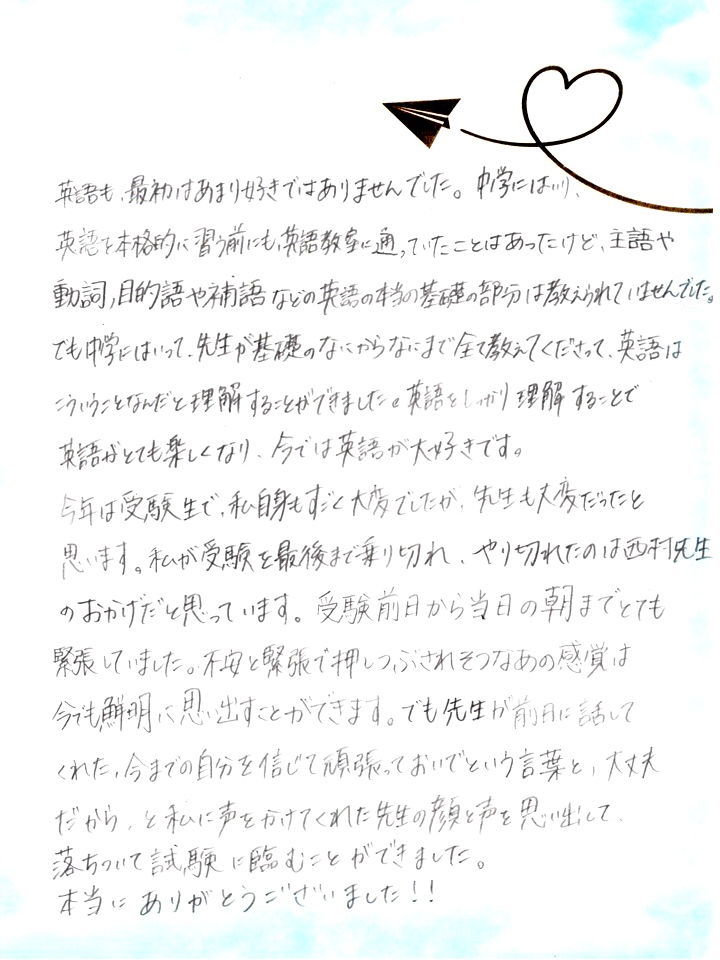 英語も、最初はあまり好きではありませんでした。中学にはいり、
英語を本格的に習う前にも英語教室に通っていたことはあったけど、主語や
動詞,目的語や補語などの英語の本当の基礎の部分は教えられていませんでした。
でも中学にはいって、先生が基礎のなにからなにまで全て教えてくださって、英語は
こういうことなんだと理解することができました。英語をしっかり理解することで
英語がとても楽しくなり、今では英語が大好きです。
今年は受験生で、私自身もすごく大変でしたが、先生も大変だったと
思います。私が受験を最後まで乗り切れ、やり切れたのは西村先生
のおかげだと思っています。受験前日から当日の朝までとても
緊張していました。不安と緊張で押しつぶされそうなあの感覚は
今でも鮮明に思い出すことができます。でも先生が前日に話して
くれた,今までの自分を信じて頑張っておいでという言葉と,大丈夫
だから,と私に声をかけてくれた先生の顔と声を思い出して、
落ちついて試験に臨むことができました。
本当にありがとうございました!!